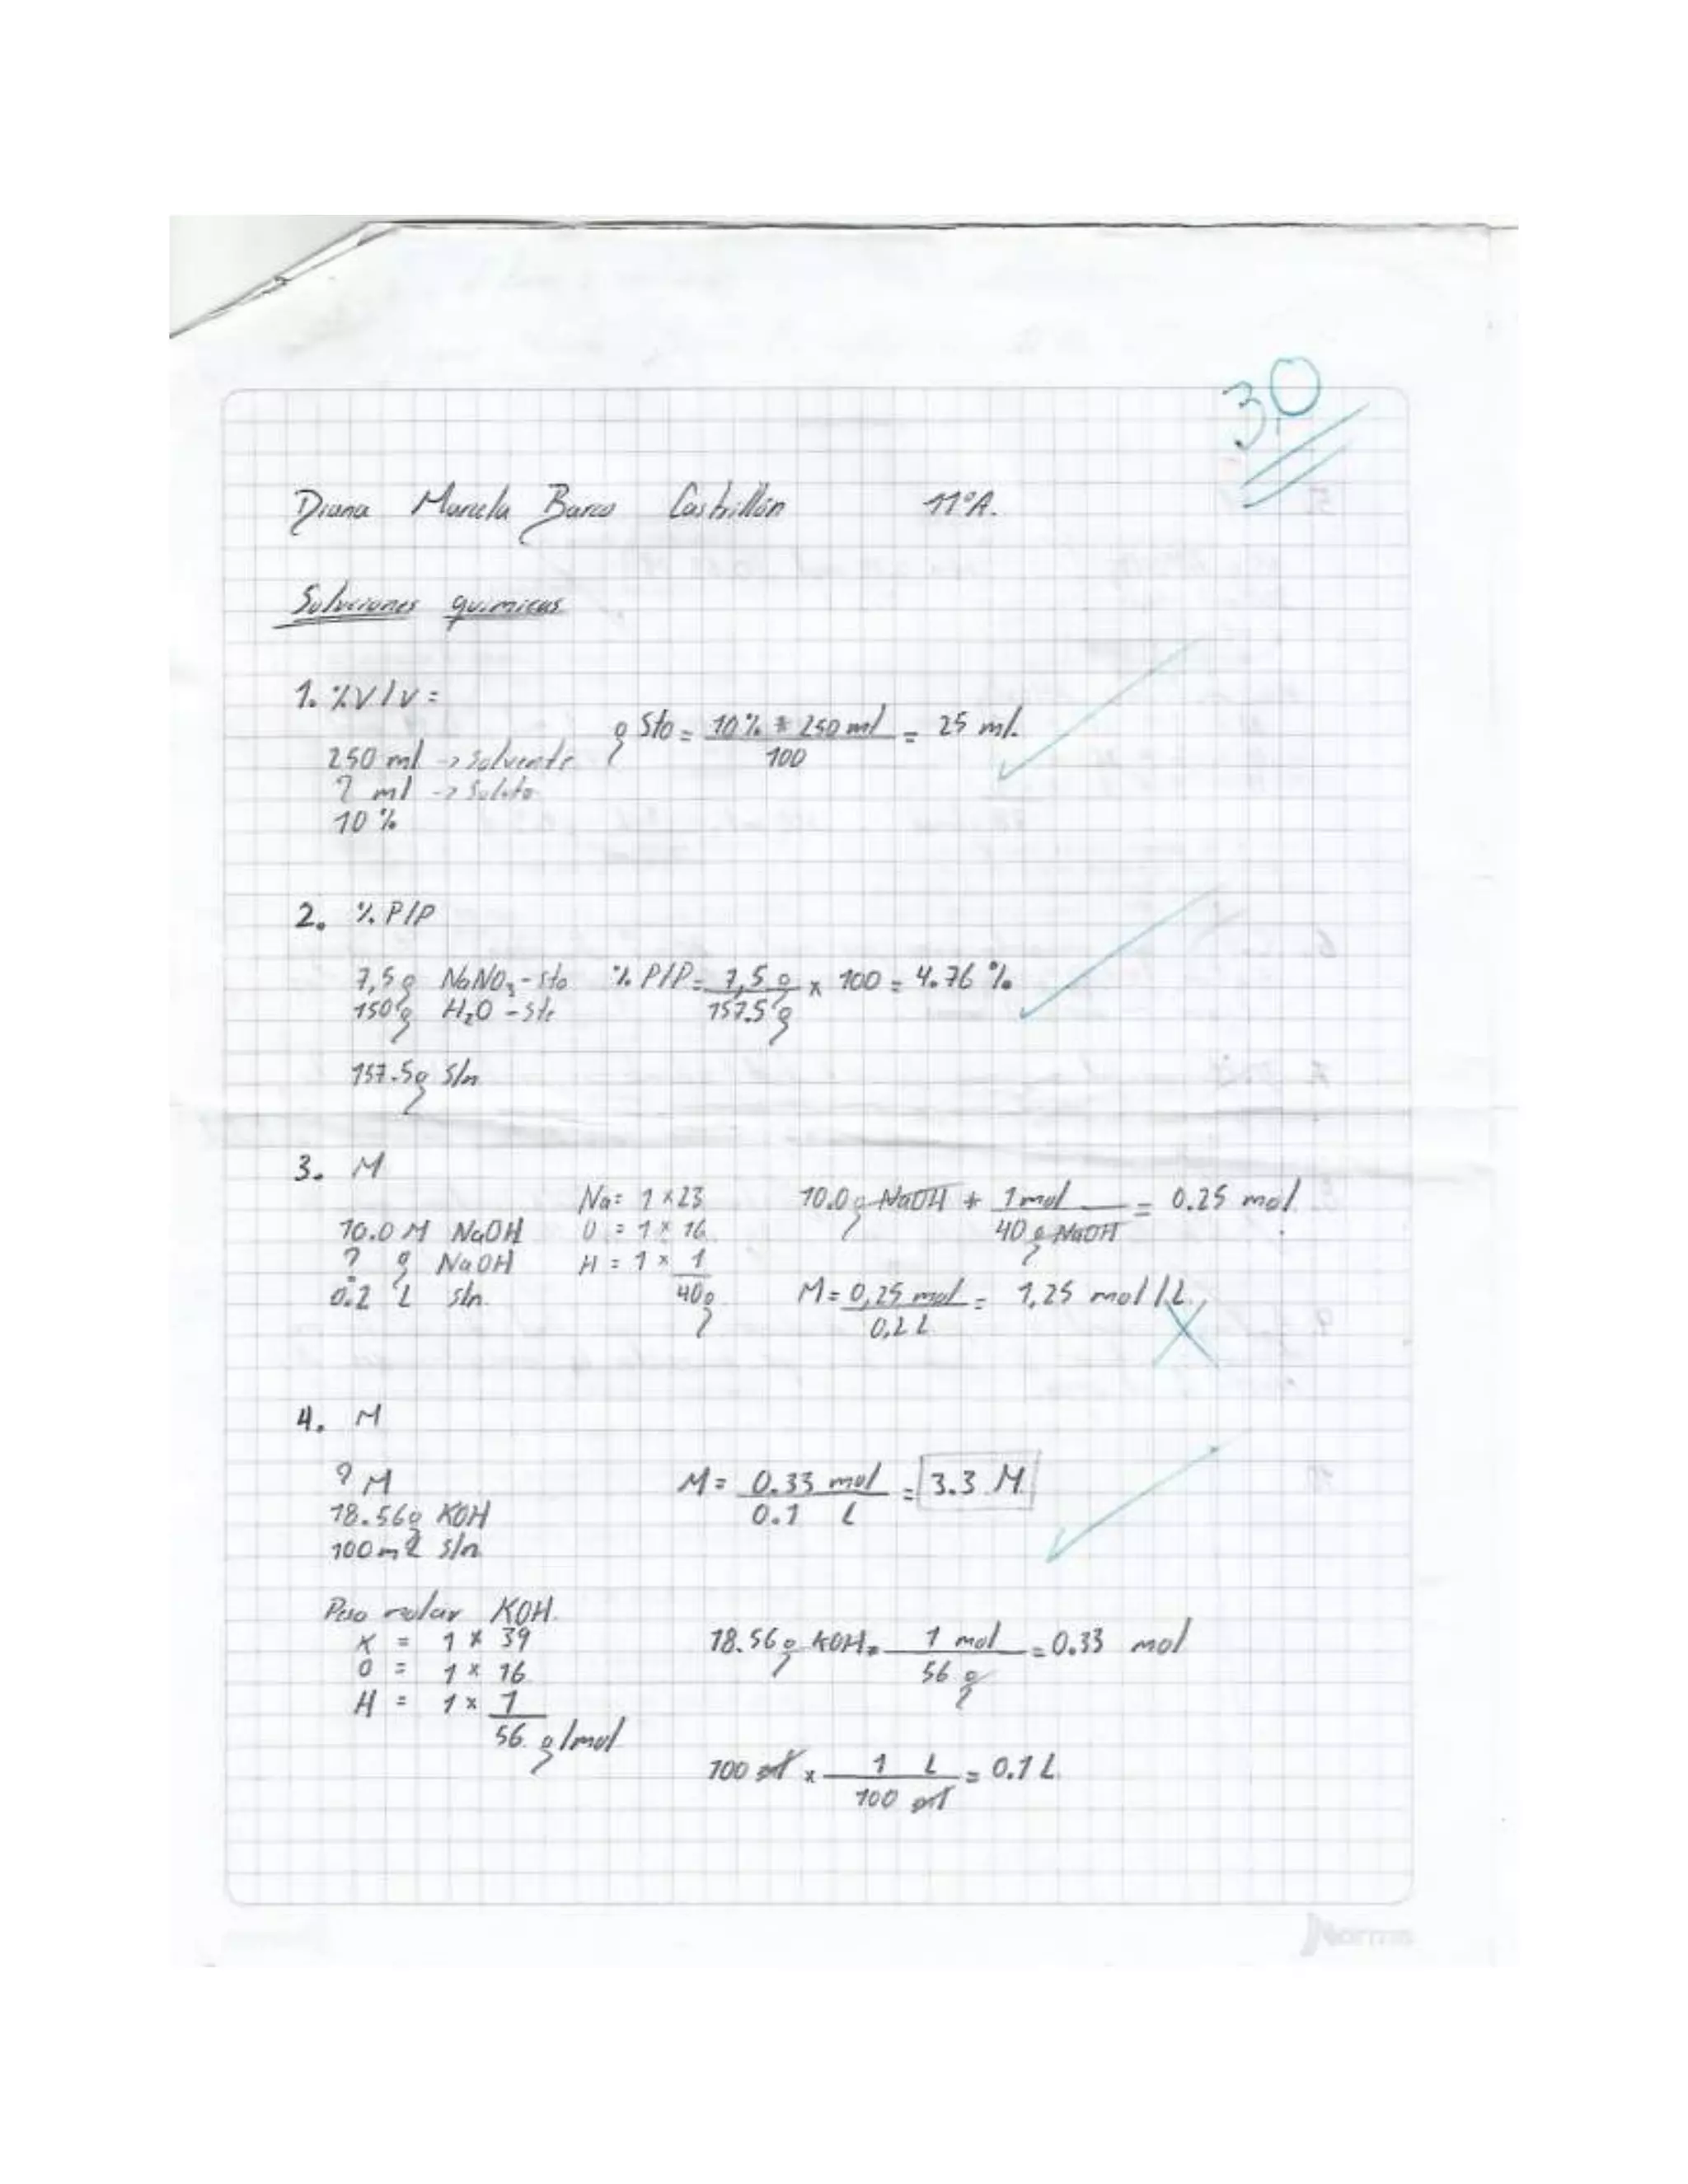 3,0
Diana Marcela Barco Castrillón 11°A.
Soluciones químicas
1. %V/V =
g Sto = 10% * 250 ml / 100 = 25 ml.
250 ml -> Solvente
? ml -> Soluto
10 %
2. % P/P
7,5g NaNO3 - sto % P/P = 7,5 g / 157.5 g x 100 = 4.76 %
150g H2O - ste
157.5g Sln
3. M
Na = 1 x 23 10.0g NaOH * 1 mol / 40 g NaOH = 0.25 mol.
10.0 M NaOH O = 1 x 16
? g NaOH H = 1 x 1
0.2 L sln. 40g M = 0,25 mol / 0,2 L = 1,25 mol/L
4. M
? M M = 0.33 mol / 0.1 L = 3.3 M
18.56g KOH
100 ml sln
Peso molar KOH.
K = 1 x 39 18.56g KOH * 1 mol / 56 g = 0.33 mol
O = 1 x 16
H = 1 x 1
56 g/mol
100 ml x 1 L / 100 ml = 0.1 L
Norma